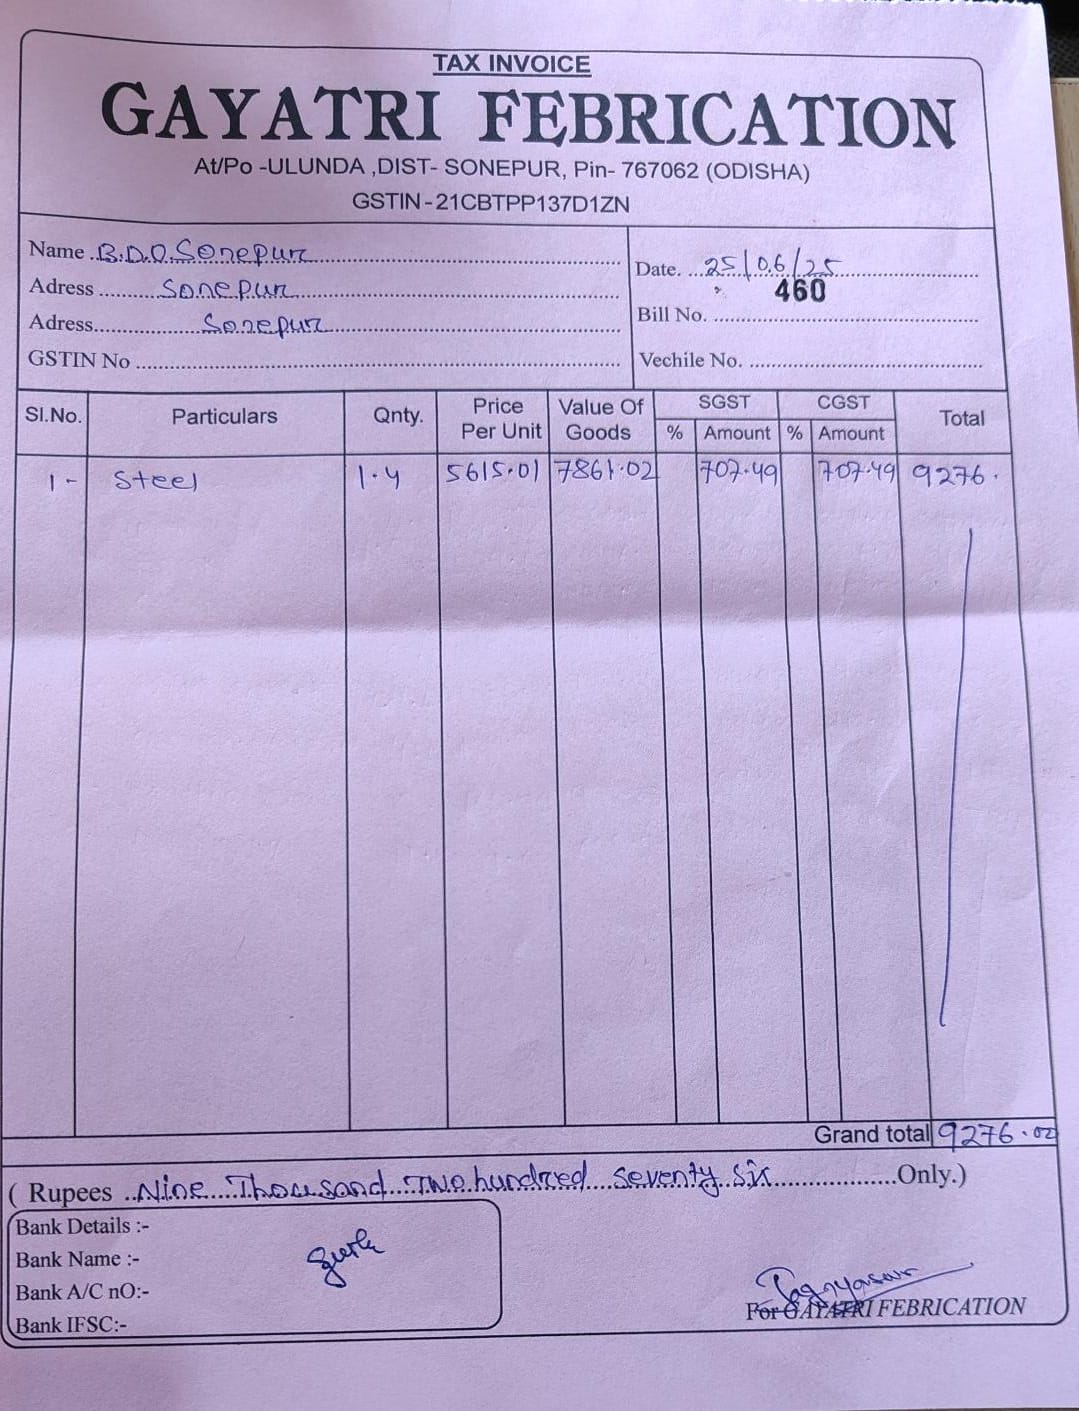 TAX INVOICE
GAYATRI FEBRICATION
At/Po -ULUNDA ,DIST- SONEPUR, Pin- 767062 (ODISHA)
GSTIN-21CBTPP137D1ZN
Name B.D.O. Sonepur
Adress Sonepur
Adress Sonepur
GSTIN No
Date. 25/06/25
Bill No. 460
Vechile No.
Sl.No. Particulars Qnty. Price Per Unit Value Of Goods SGST % Amount CGST % Amount Total
1- Steel 1.4 5615.01 7861.02 707.49 707.49 9276.
Grand total 9276.02
( Rupees Nine Thousand Two hundred seventy six Only.)
Bank Details :-
Bank Name :-
Bank A/C nO:-
Bank IFSC:-
For GAYATRI FEBRICATION